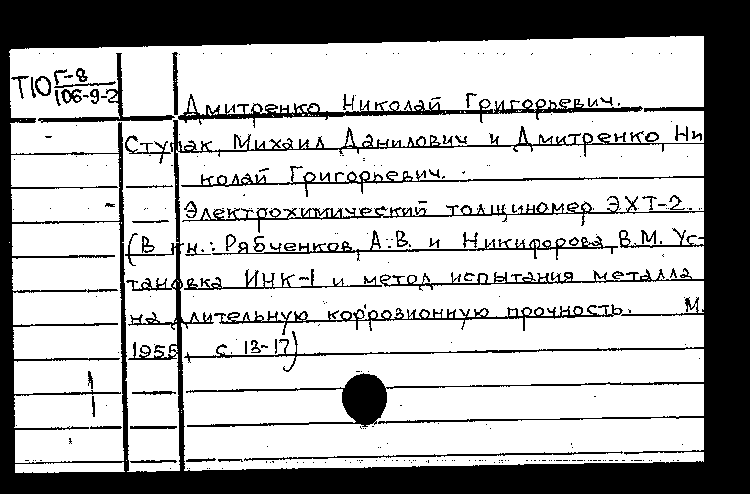 Т10 Г-8
106-9-2
Дмитренко, Николай Григорьевич.
Ступак, Михаил Данилович и Дмитренко, Ни
колай Григорьевич.
Электрохимический толщиномер ЭХТ-2.
(В кн.: Рябченков, А.В. и Никифорова, В.М. Ус-
тановка ИНК-1 и метод испытания металла
на длительную коррозионную прочность. М.
1955, с. 13-17)